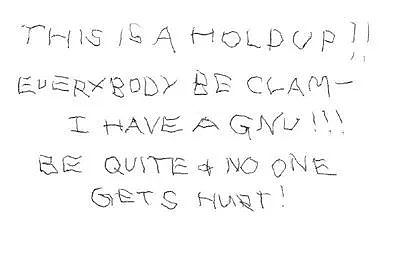 THIS IS A HOLDUP!!
EVERYBODY BE CLAM—
I HAVE A GNU!!!
BE QUITE & NO ONE
GETS HURT!